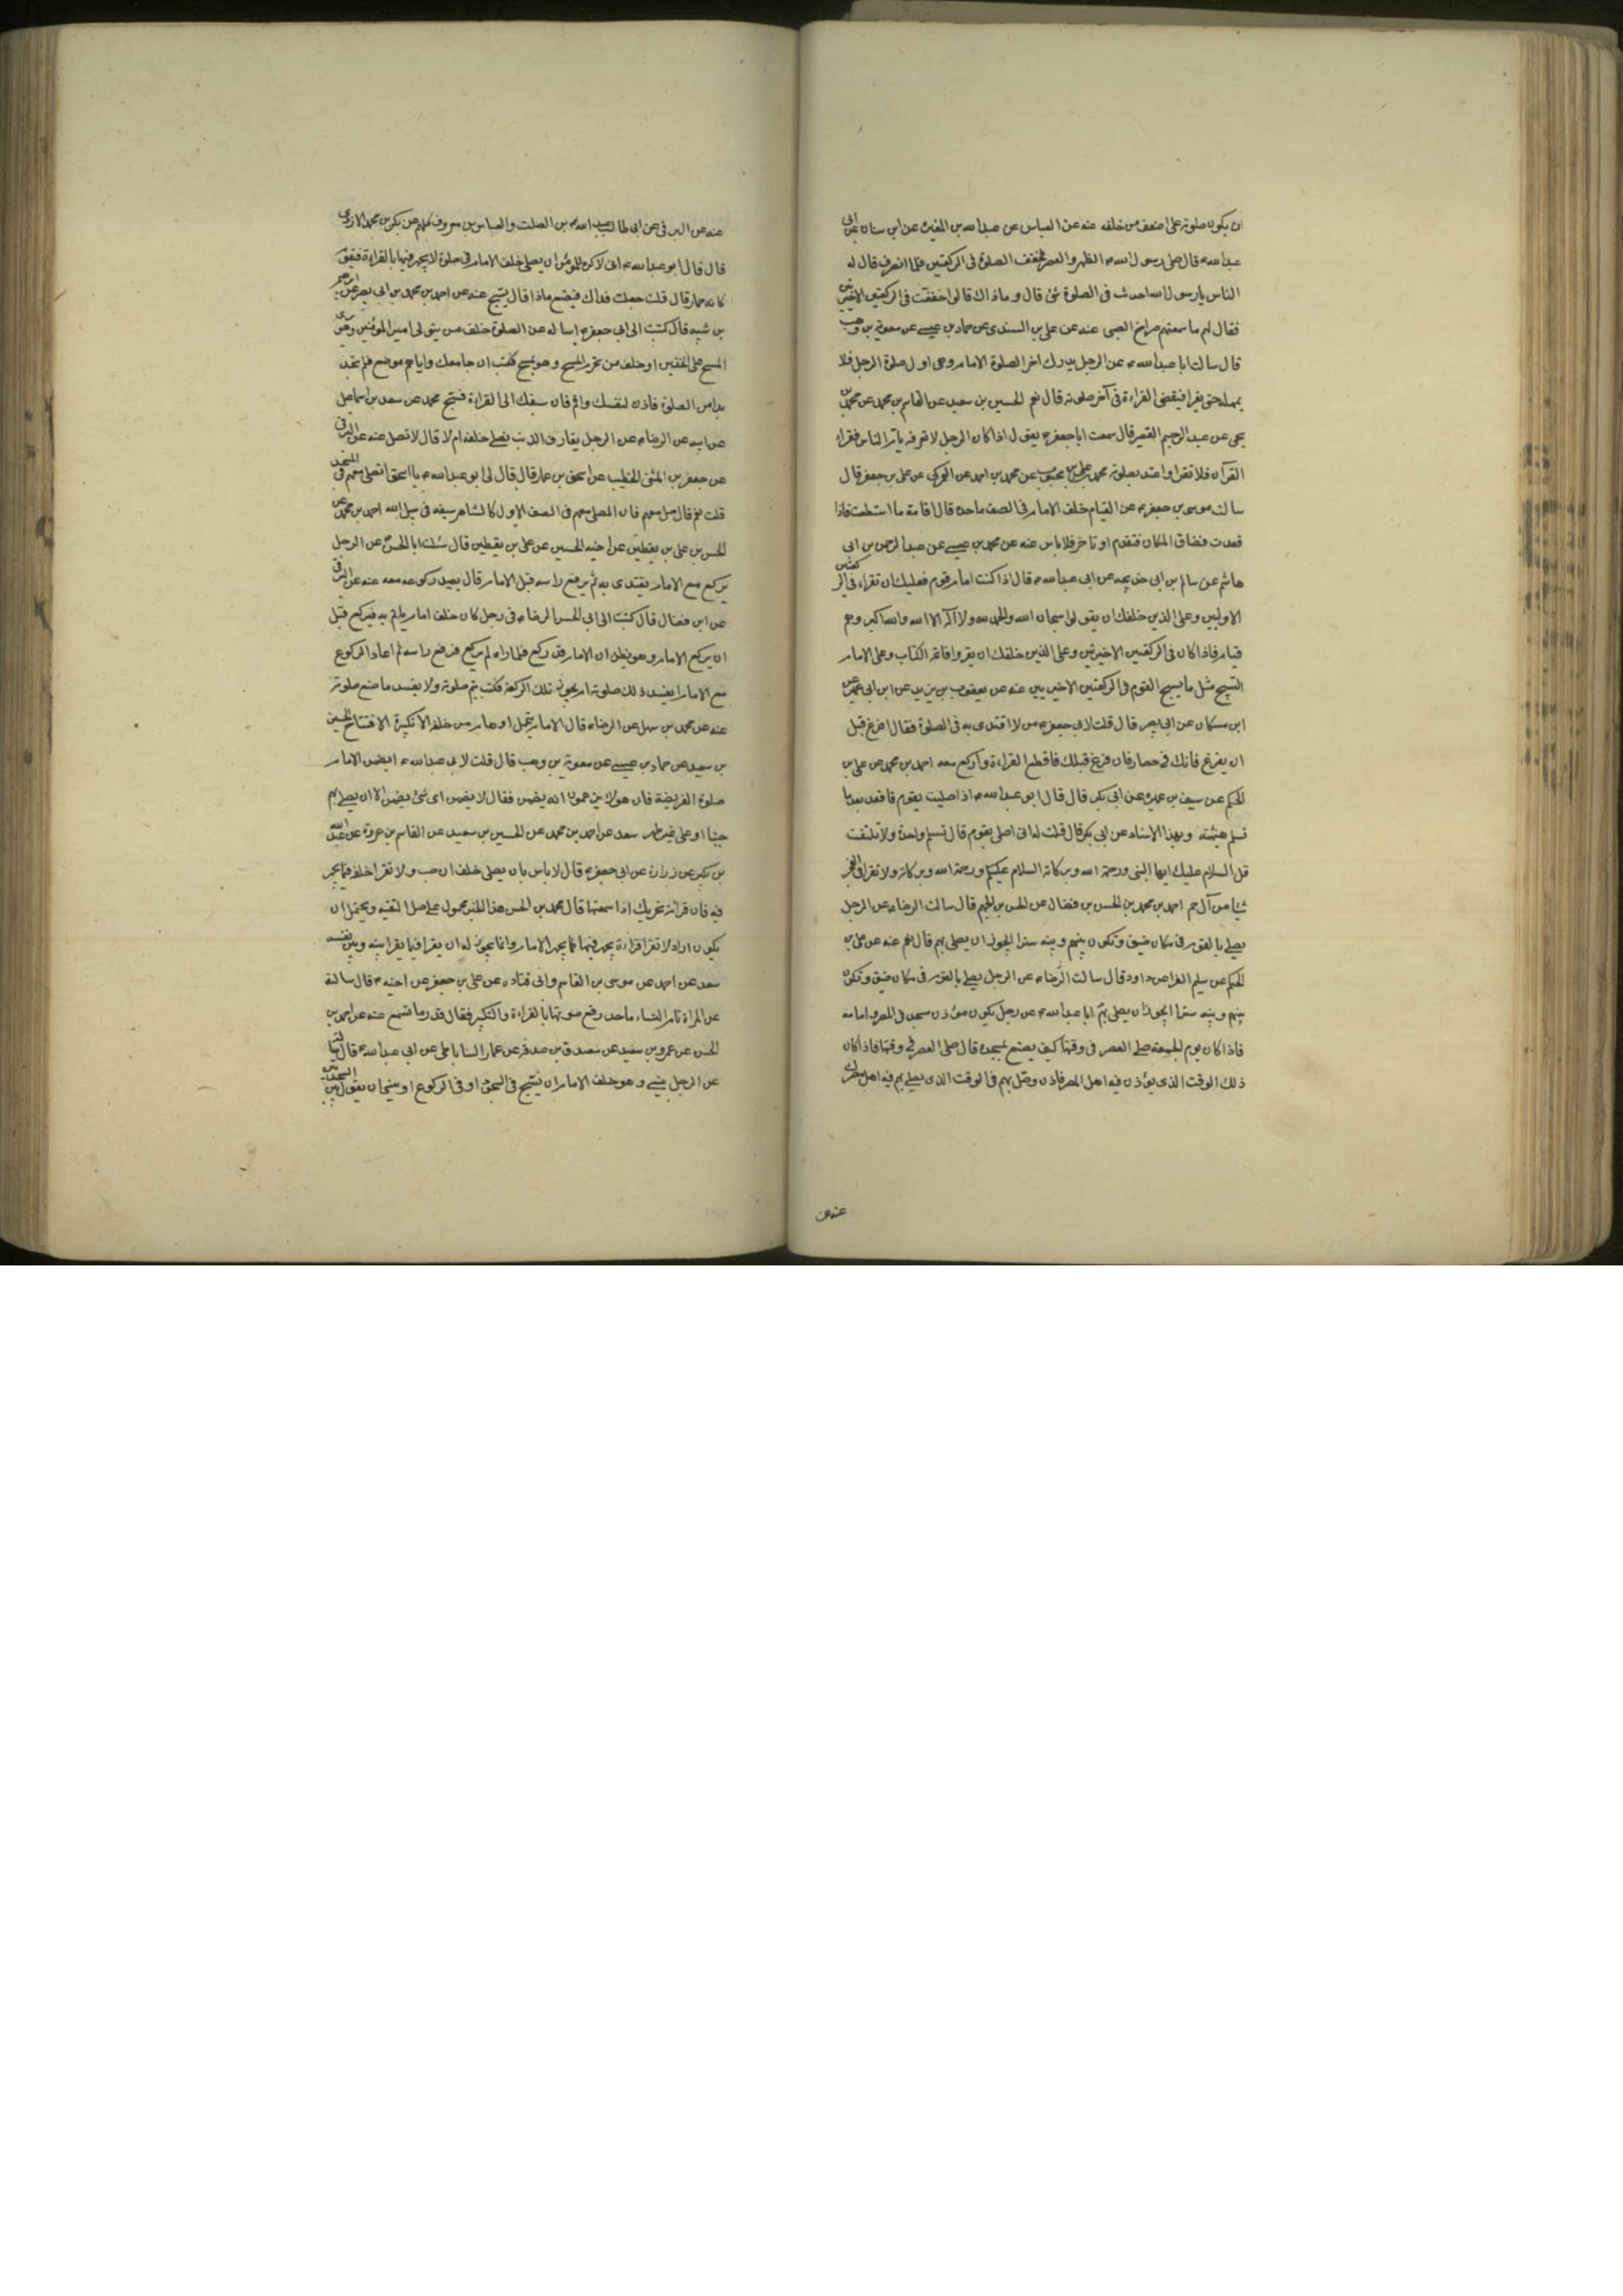 ان يكون صلوته على اضعف من خلفه عنه عن العباس عن عبدالله بن المغيرة عن ابن سنان عن ابى
عبدالله ع قال صلى رسول الله ص الظهر والعصر فخفف الصلوة فى الركعتين فلما انصرف قال له
الناس يارسول الله احدث فى الصلوة شئ قال وماذاك قالوا خففت فى الركعتين الاخيرتين
فقال لهم ما سمعتم صراخ الصبى عنه عن على بن السندى عن حماد بن عيسى عن معوية بن وهب
قال سالت ابا عبدالله ع عن الرجل يدرك اخر الصلوة الامام وهى اول صلوة الرجل فلا
يمهله حتى يقرا فيقضى القراءة فى آخر صلوته قال نعم الحسين بن سعيد عن القاسم بن محمد عن محمد بن
يحيى عن عبد الرحيم القصير قال سمعت اباجعفر ع يقول اذا كان الرجل لا تعرفه يأتم الناس فقراء
القرآن فلا تقرا واعتد بصلوته محمد بن على بن محبوب عن محمد بن احمد عن العمركى عن على بن جعفر قال
سالت موسى بن جعفر ع عن القيام خلف الامام فى الصف ماحده قال اقامة ما استطعت فاذا
قعدت فضاق المكان فتقدم او تاخر فلا باس عنه عن محمد بن عيسى عن عبدالرحمن بن ابى
هاشم عن سالم بن ابى خديجه عن ابى عبدالله ع قال اذا كنت امام قوم فعليك ان تقراء فى الركعتين
الاوليين وعلى الذين خلفك ان يقولوا سبحان الله والحمد لله ولا آله الا الله والله اكبر وهم
قيام فاذا كان فى الركعتين الاخيرتين وعلى الذين خلفك ان يقروا فاتحة الكتاب وعلى الامام
التسبيح مثل ما يسبح القوم فى الركعتين الاخيرتين عنه عن يعقوب بن يزيد عن ابن ابى عمير عن
ابن مسكان عن ابى بصير قال قلت لابى جعفر ع من لا اقتدى به فى الصلوة فقال افرغ قبل
ان يفرغ فانك فى حصار فان فرغ قبلك فاقطع القراءة واركع معه احمد بن محمد عن على بن
الحكم عن سيف بن عميرة عن ابى بكر قال قال ابو عبدالله ع اذا صليت بقوم فاقعد بعد ما
تسلم هنيئة وبهذا الاسناد عن ابى بكر قال قلت له انى اصلى بقوم قال تسلم واحدة ولا تلتفت
قل السلام عليك ايها النبى ورحمة الله وبركاته السلام عليكم ورحمة الله وبركاته ولا تقرا فى الفجر
شيئا من آل حم احمد بن محمد بن الحسن بن فضال عن الحسن بن الجهم قال سالت الرضا ع عن الرجل
يصلى بالقوم فى مكان ضيق وتكون بينهم وبينه سترا ايجوز ان يصلى بهم قال نعم عنه عن على بن
الحكم عن سليم الفرا عن داود قال سالت الرضا ع عن الرجل يصلى بالقوم فى مكان ضيق وتكون
بينهم وبينه سترا ايجوز ان يصلى بهم ابا عبدالله ع عن رجل يكون مؤذن مسجد فى المصر وامامه
فاذا كان يوم الجمعة صلى العصر فى وقتها كيف يصنع بمسجده قال صلى العصر فى وقتها فاذا كان
ذلك الوقت الذى يؤذن فيه اهل المصر فاذن وصل بهم فى الوقت الذى يصلى بهم فيه اهل مصرك
عنه عن
عنه عن البرقى عن ابى طالب عبد الله بن الصلت والعباس بن معروف كلهم عن بكر بن محمد الازدى
قال قال ابو عبدالله ع انى لاكره للمؤمن ان يصلى خلف الامام فى صلوة لا يجهر فيها بالقراءة فيقوم
كانه حمار قال قلت جعلت فداك فيصنع ماذا قال يسبح عنه عن احمد بن محمد بن ابى نصر عن ابرهيم
بن شيبه قال كتبت الى ابى جعفر ع اساله عن الصلوة خلف من يتولى امير المؤمنين وهو يرى
المسح على الخفين او خلف من يحرم المسح وهو يمسح فكتب ان جامعك واياهم موضع فلم تجد
بدا من الصلوة فاذن لنفسك واقم فان سبقك الى القراءة فسبح محمد عن سعد بن اسماعيل
عن ابيه عن الرضا ع عن الرجل يقارف الذنب يصلى خلفه ام لا قال لا تصل عنه عن البرقى
عن جعفر بن المثنى الخطيب عن اسحق بن عمار قال قال لى ابو عبدالله ع يا اسحق اتصلى معهم فى المسجد
قلت نعم قال صل معهم فان المصلى معهم فى الصف الاول كالشاهر سيفه فى سبيل الله احمد بن محمد عن
الحسن بن على بن يقطين عن اخيه الحسين عن على بن يقطين قال سالت ابا الحسن ع عن الرجل
يركع مع الامام يقتدى به ثم يرفع راسه قبل الامام قال يعيد ركوعه معه عنه عن البرقى
عن ابن فضال قال كتبت الى ابى الحسن الرضا ع فى رجل كان خلف امام ياتم به فيركع قبل
ان يركع الامام وهو يظن ان الامام قد ركع فلما راه لم يركع فرفع راسه ثم اعاد الركوع
مع الامام ايفسد ذلك صلوته ام يجوز تلك الركعة فكتب يتم صلوته ولا يفسد ما صنع صلوته
عنه عن محمد بن سهل عن الرضا ع قال الامام يتحمل اوهام من خلفه الا تكبيرة الافتتاح الحسين
بن سعيد عن حماد بن عيسى عن معوية بن وهب قال قلت لابى عبدالله ع ايضمن الامام
صلوة الفريضة فان هؤلاء يزعمون انه يضمن فقال لا يضمن اى شئ يضمن الا ان يصلى بهم
جنبا او على غير طهر سعد عن احمد بن محمد عن الحسين بن سعيد عن القاسم بن عروة عن عبدالله
بن بكير عن زرارة عن ابى جعفر ع قال لا باس بان يصلى خلف الناصب ولا تقرا خلفه فيما يجهر
فيه فان قرائته تجزيك اذا سمعتها قال محمد بن الحسن هذا الخبر محمول على حال التقية ويحتمل ان
يكون اراد لا تقرا قراءة يجهر فيها كما يجهر الامام وانما يجوز له ان يقرا فيما يقرا بينه وبين نفسه
سعد عن احمد عن موسى بن القاسم وابى قتاده عن على بن جعفر عن اخيه ع قال سالته
عن المراة تام النساء ماحد رفع صوتها بالقراءة والتكبير فقال قدر ما تسمع عنه عن احمد بن
الحسن عن عمرو بن سعيد عن مصدق بن صدقة عن عمار الساباطى عن ابى عبدالله ع قال
عن الرجل ينسى وهو خلف الامام ان يسبح فى السجود او فى الركوع او ينسى ان يقول بين السجدتين